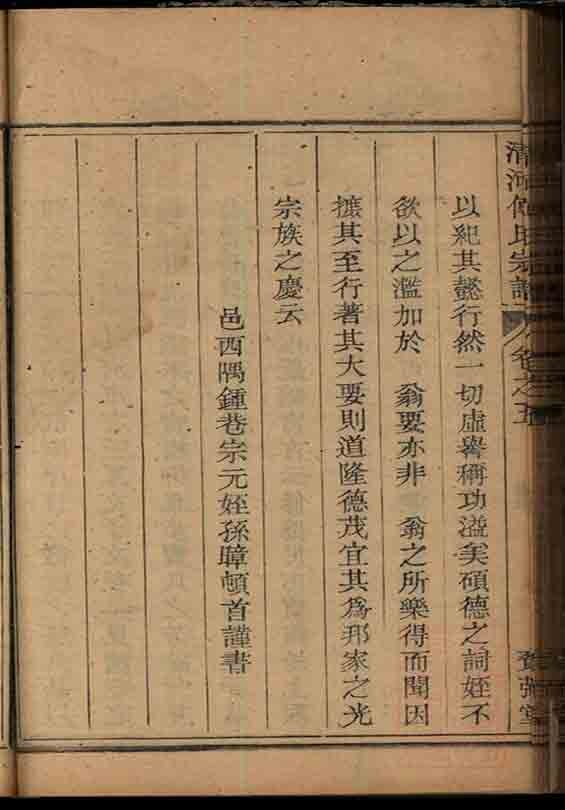 清河傅氏宗譜 卷之五
以紀其懿行然一切虛譽稱功溢美碩德之詞姪不
欲以之濫加於 翁要亦非 翁之所樂得而聞因
摭其至行著其大要則道隆德茂宜其為邦家之光
宗族之慶云
邑西隅鍾巷宗元姪孫暲頓首謹書